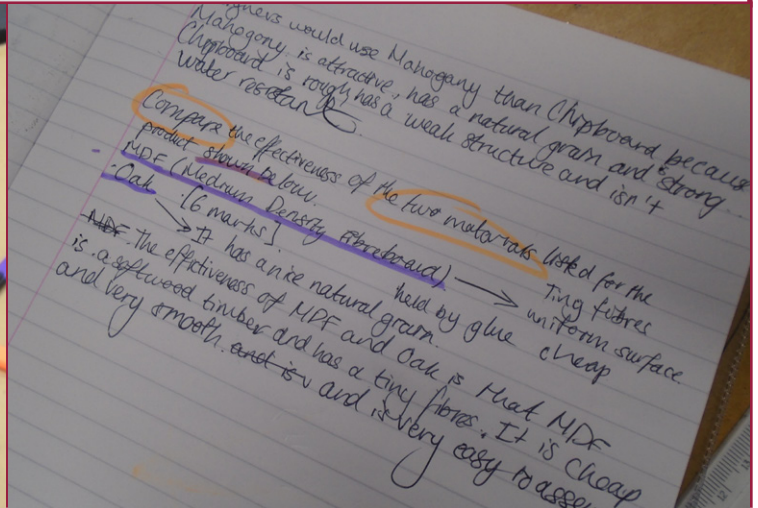 would use Mahogany than Chipboard because
Mahogany is attractive, has a natural grain and strong
Chipboard is rough, has a weak structure and isn't
water resistant
Compare the effectiveness of the two materials listed for the
product shown below.
- MDF (Medium Density Fibreboard) → Tiny fibres
- Oak [6 marks] held by glue uniform surface.
→ It has a nice natural grain. cheap
MDF. The effectiveness of MDF and Oak is that MDF
is a softwood timber and has a tiny fibres. It is cheap
and very smooth and is and is very easy to